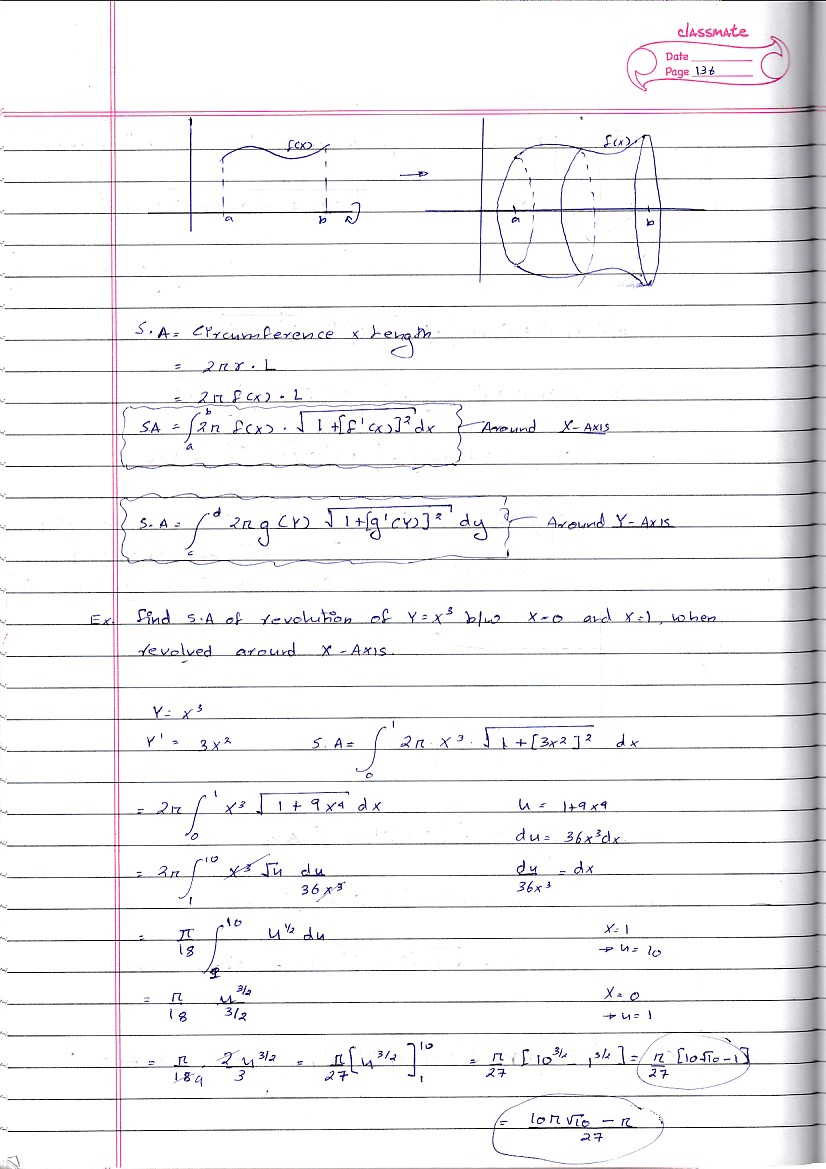 classmate
Date
Page 136
f(x)
a b
f(x)
a b
S.A = Circumference × Length
= 2πr · L
= 2π f(x) · L
SA = ∫_a^b 2π f(x) · √(1+[f'(x)]²) dx Around X-Axis
S.A = ∫_c^d 2π g(Y) √(1+[g'(Y)]²) dy Around Y-Axis
Ex. Find S.A of revolution of Y = x³ b/w X=0 and X=1, when
revolved around X-Axis.
Y = x³
Y' = 3x² S.A = ∫_0^1 2π · x³ · √(1+[3x²]²) dx
= 2π ∫_0^1 x³ √(1+9x⁴) dx u = 1+9x⁴
du = 36x³dx
= 2π ∫_1^10 x³ √u du/36x³ du/36x³ = dx
= π/18 ∫_1^10 u^1/2 du X=1
→ u = 10
= π/18 u^3/2 / 3/2 X=0
→ u = 1
= π/18 9 · 2u^3/2 / 3 = π/27 [u^3/2]_1^10 = π/27 [10^3/2 - 1^3/2] = π/27 [10√10 - 1]
= 10π√10 - π / 27